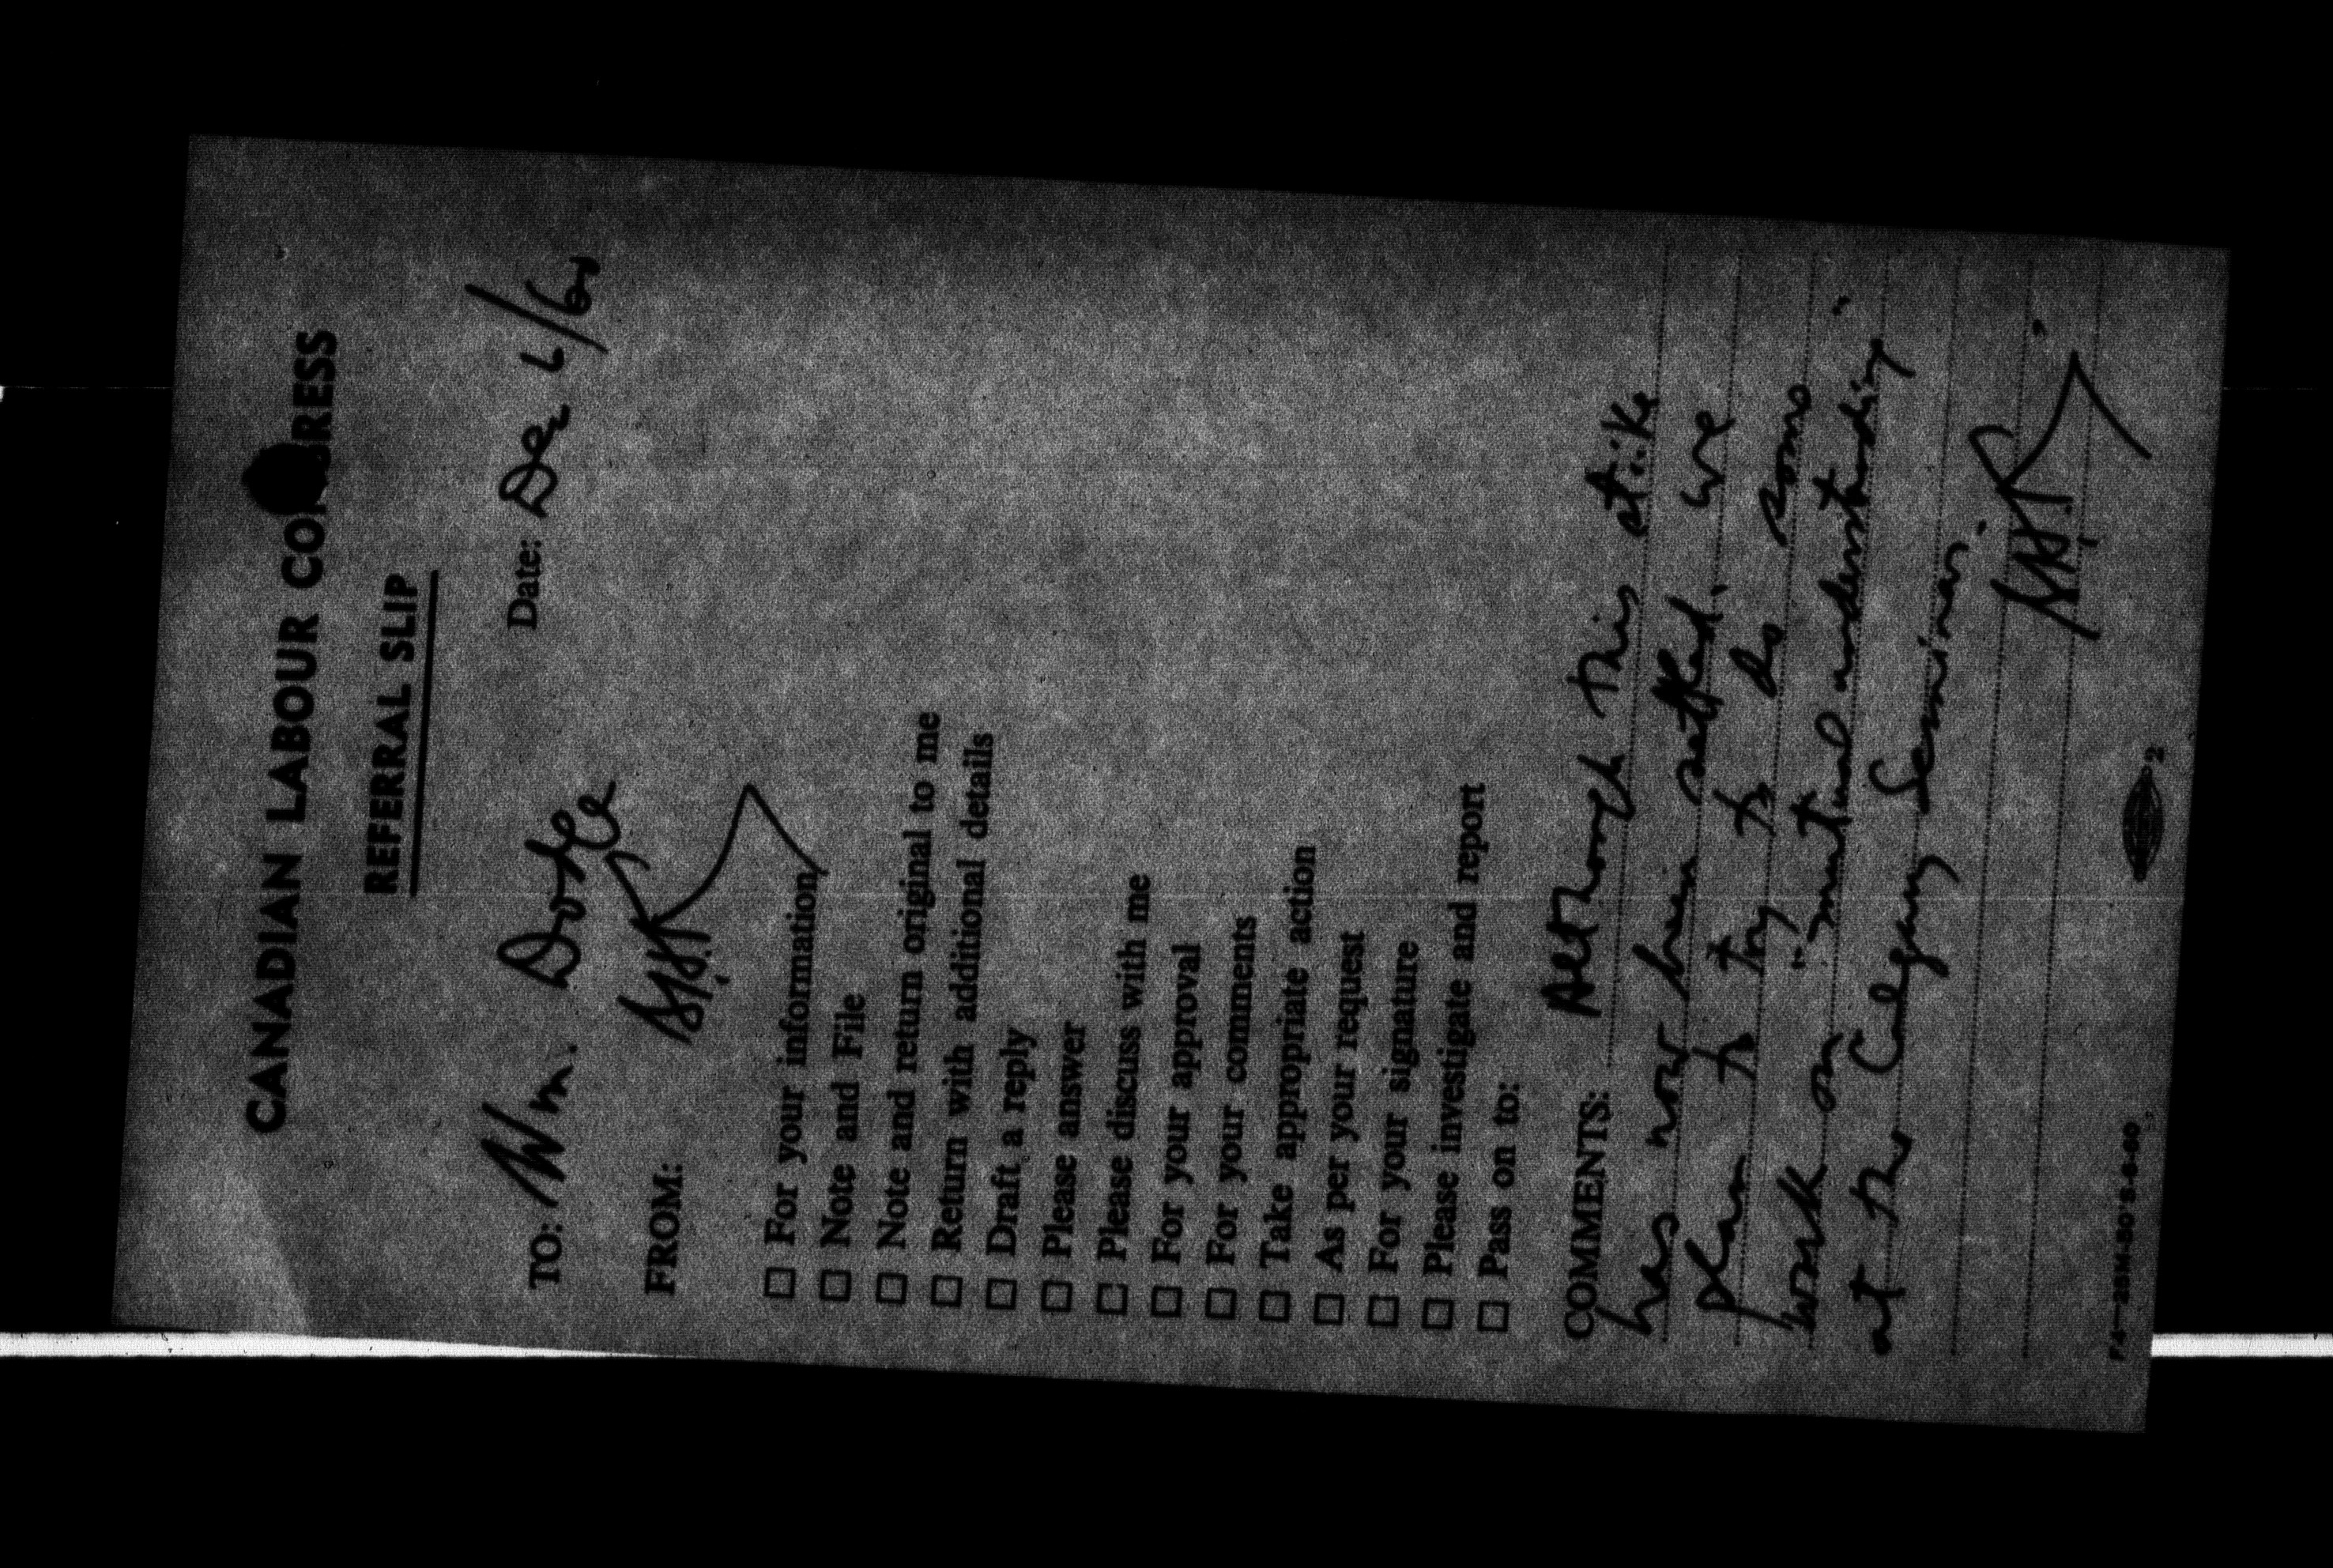 CANADIAN LABOUR CONGRESS
REFERRAL SLIP
Date: Dec 6/60
TO: Wm. Dodge
FROM:
☐ For your information
☐ Note and File
☐ Note and return original to me
☐ Return with additional details
☐ Draft a reply
☐ Please answer
☐ Please discuss with me
☐ For your approval
☐ For your comments
☐ Take appropriate action
☐ As per your request
☐ For your signature
☐ Please investigate and report
☐ Pass on to:
COMMENTS: Although this strike
has now been settled, we
plan to try to do some
work on "mutual understanding"
at the Calgary Seminar.
F4—25M-50'S-6-60
2